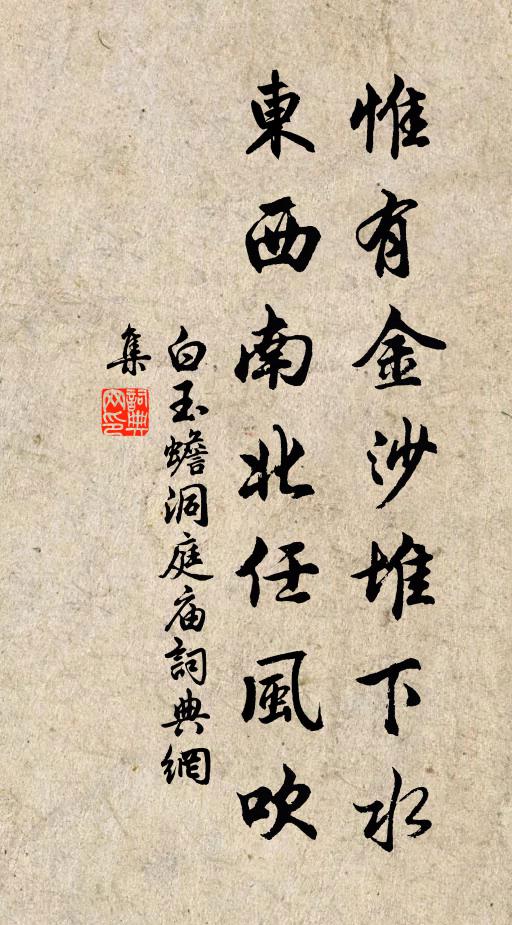 惟有金沙堆下水
東西南北任風吹
白玉蟾洞庭庙詞典網
集
詞典网印